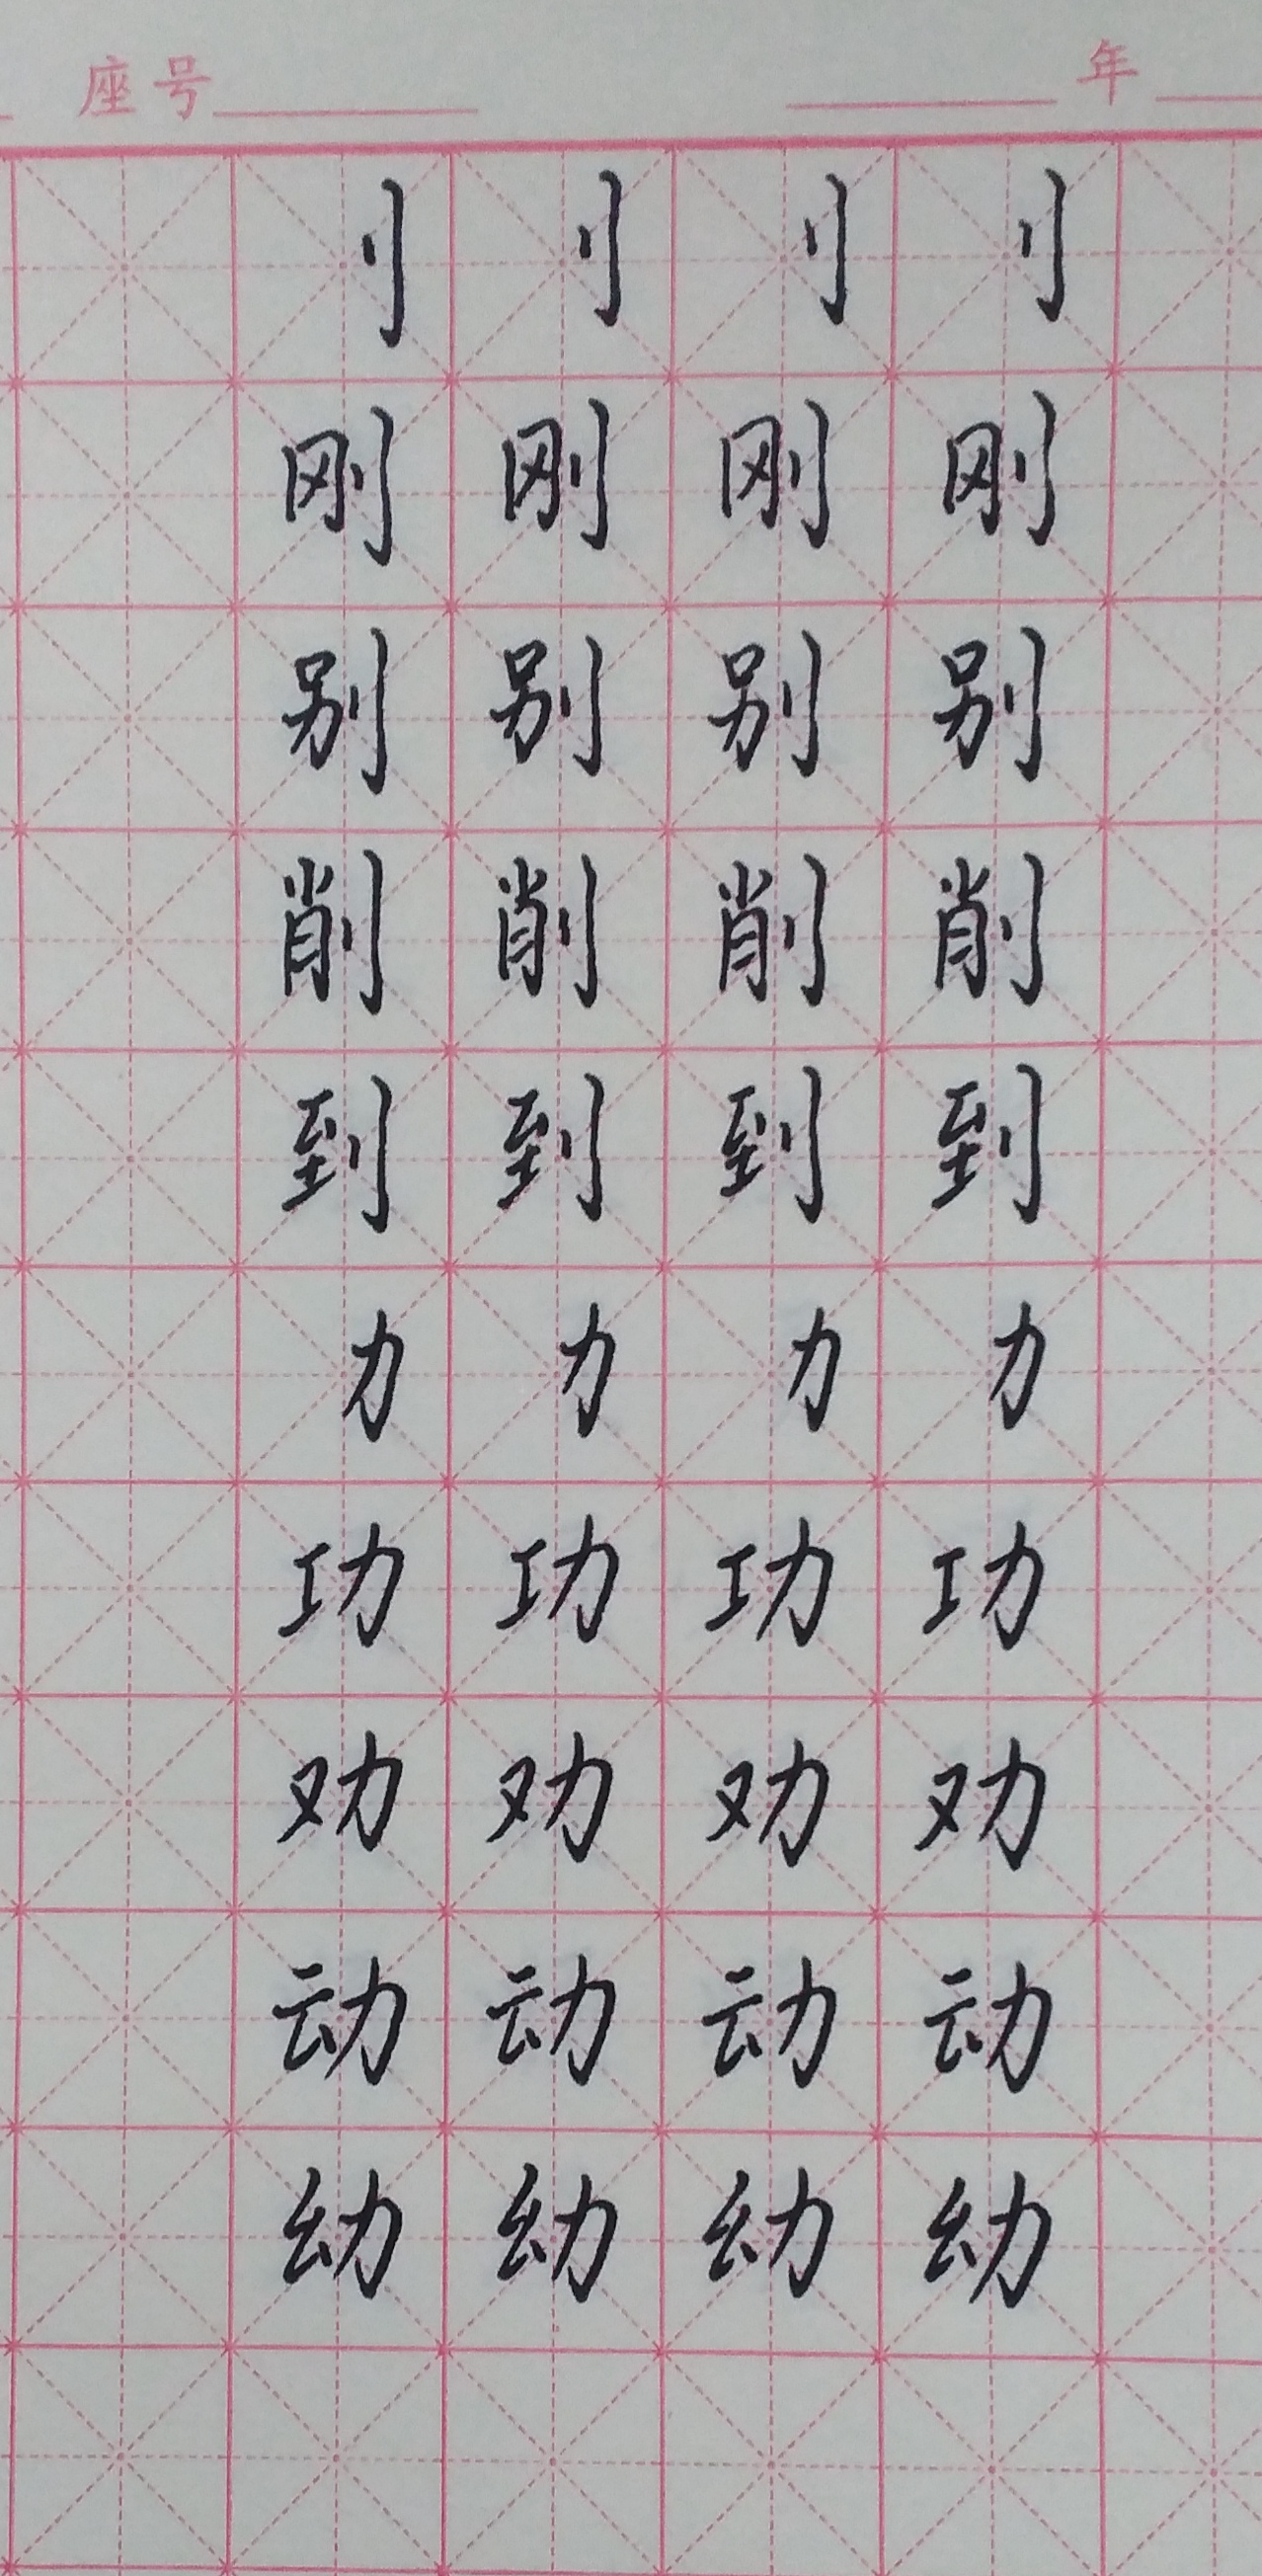 座号 年
刂 刂 刂 刂
刚 刚 刚 刚
别 别 别 别
削 削 削 削
到 到 到 到
力 力 力 力
功 功 功 功
劝 劝 劝 劝
动 动 动 动
幼 幼 幼 幼